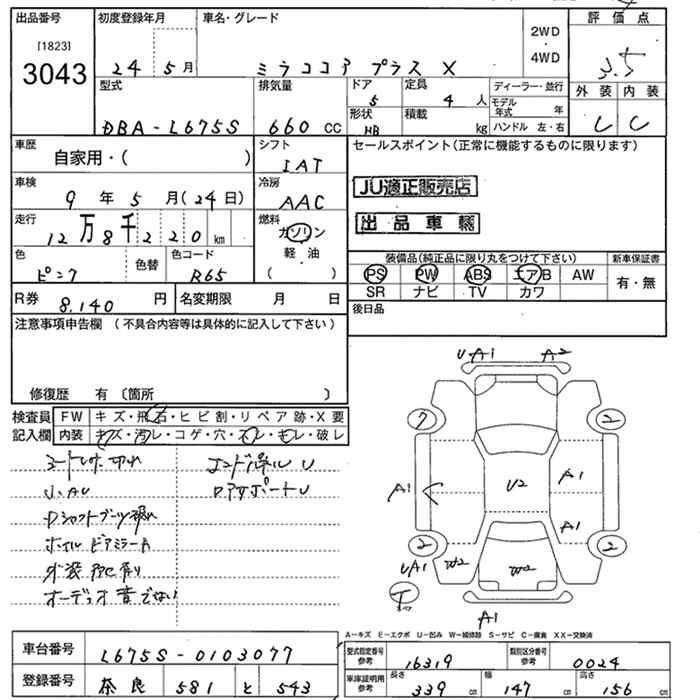 出品番号 [1823] 3043
初度登録年月 24年 5月
車名・グレード ミラココア プラス X
2WD・4WD
評価点 3.5
外装 内装
C C
型式 DBA-L675S
排気量 660 cc
ドア 5
形状 HB
定員 4人
積載 kg
ディーラー・並行
モデル年式 年
ハンドル 左・右
車歴 自家用・( )
シフト IAT
車検 9年 5月(24日)
冷房 AAC
走行 12万8千220km
燃料 ガソリン 軽油 ( )
色 ピンク
色替
色コード R65
R券 8,140円
名変期限 月 日
セールスポイント(正常に機能するものに限ります)
JU適正販売店
出品車輌
装備品(純正品に限り丸をつけて下さい)
新車保証書
PS PW ABS エアB AW
SR ナビ TV カワ
有・無
後日品
注意事項申告欄(不具合内容等は具体的に記入して下さい)
修復歴 有〔箇所 〕
検査員記入欄
FW キズ・飛石・ヒビ割・リペア跡・X要
内装 キズ・汚レ・コゲ・穴・スレ・モレ・破レ
シート 切れ
エンドパネル U
U.AU
ロアサポートU
Dシャフトブーツ破れ
ホイル ドアミラーA
外装
オーディオ音でない
U・A1 A2
7 2
A1 U2 A1
A1
2 2
UA1 W2 W2
A1
A-キズ E-エクボ U-凹み W-補修跡 S-サビ C-腐食 XX-交換済
車台番号 L675S-0103077
登録番号 奈良 581 と 543
型式指定番号参考 16319
類別区分番号参考 0024
車庫証明用参考 長さ 339cm 幅 147cm 高さ 156cm